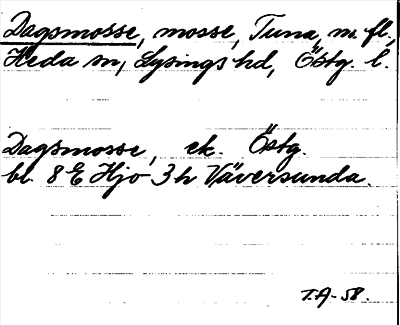 Dagsmosse, mosse, Tuna, m. fl.,
Heda sn, Lysings hd, Östg. l.
Dagsmosse, ek. Östg.
bl. 8 E Hjo 3 h Väversunda.
T.A-58.